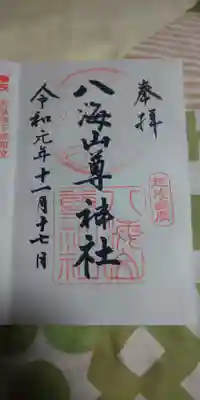 奉拝
八海山尊神社
令和元年十一月十七日